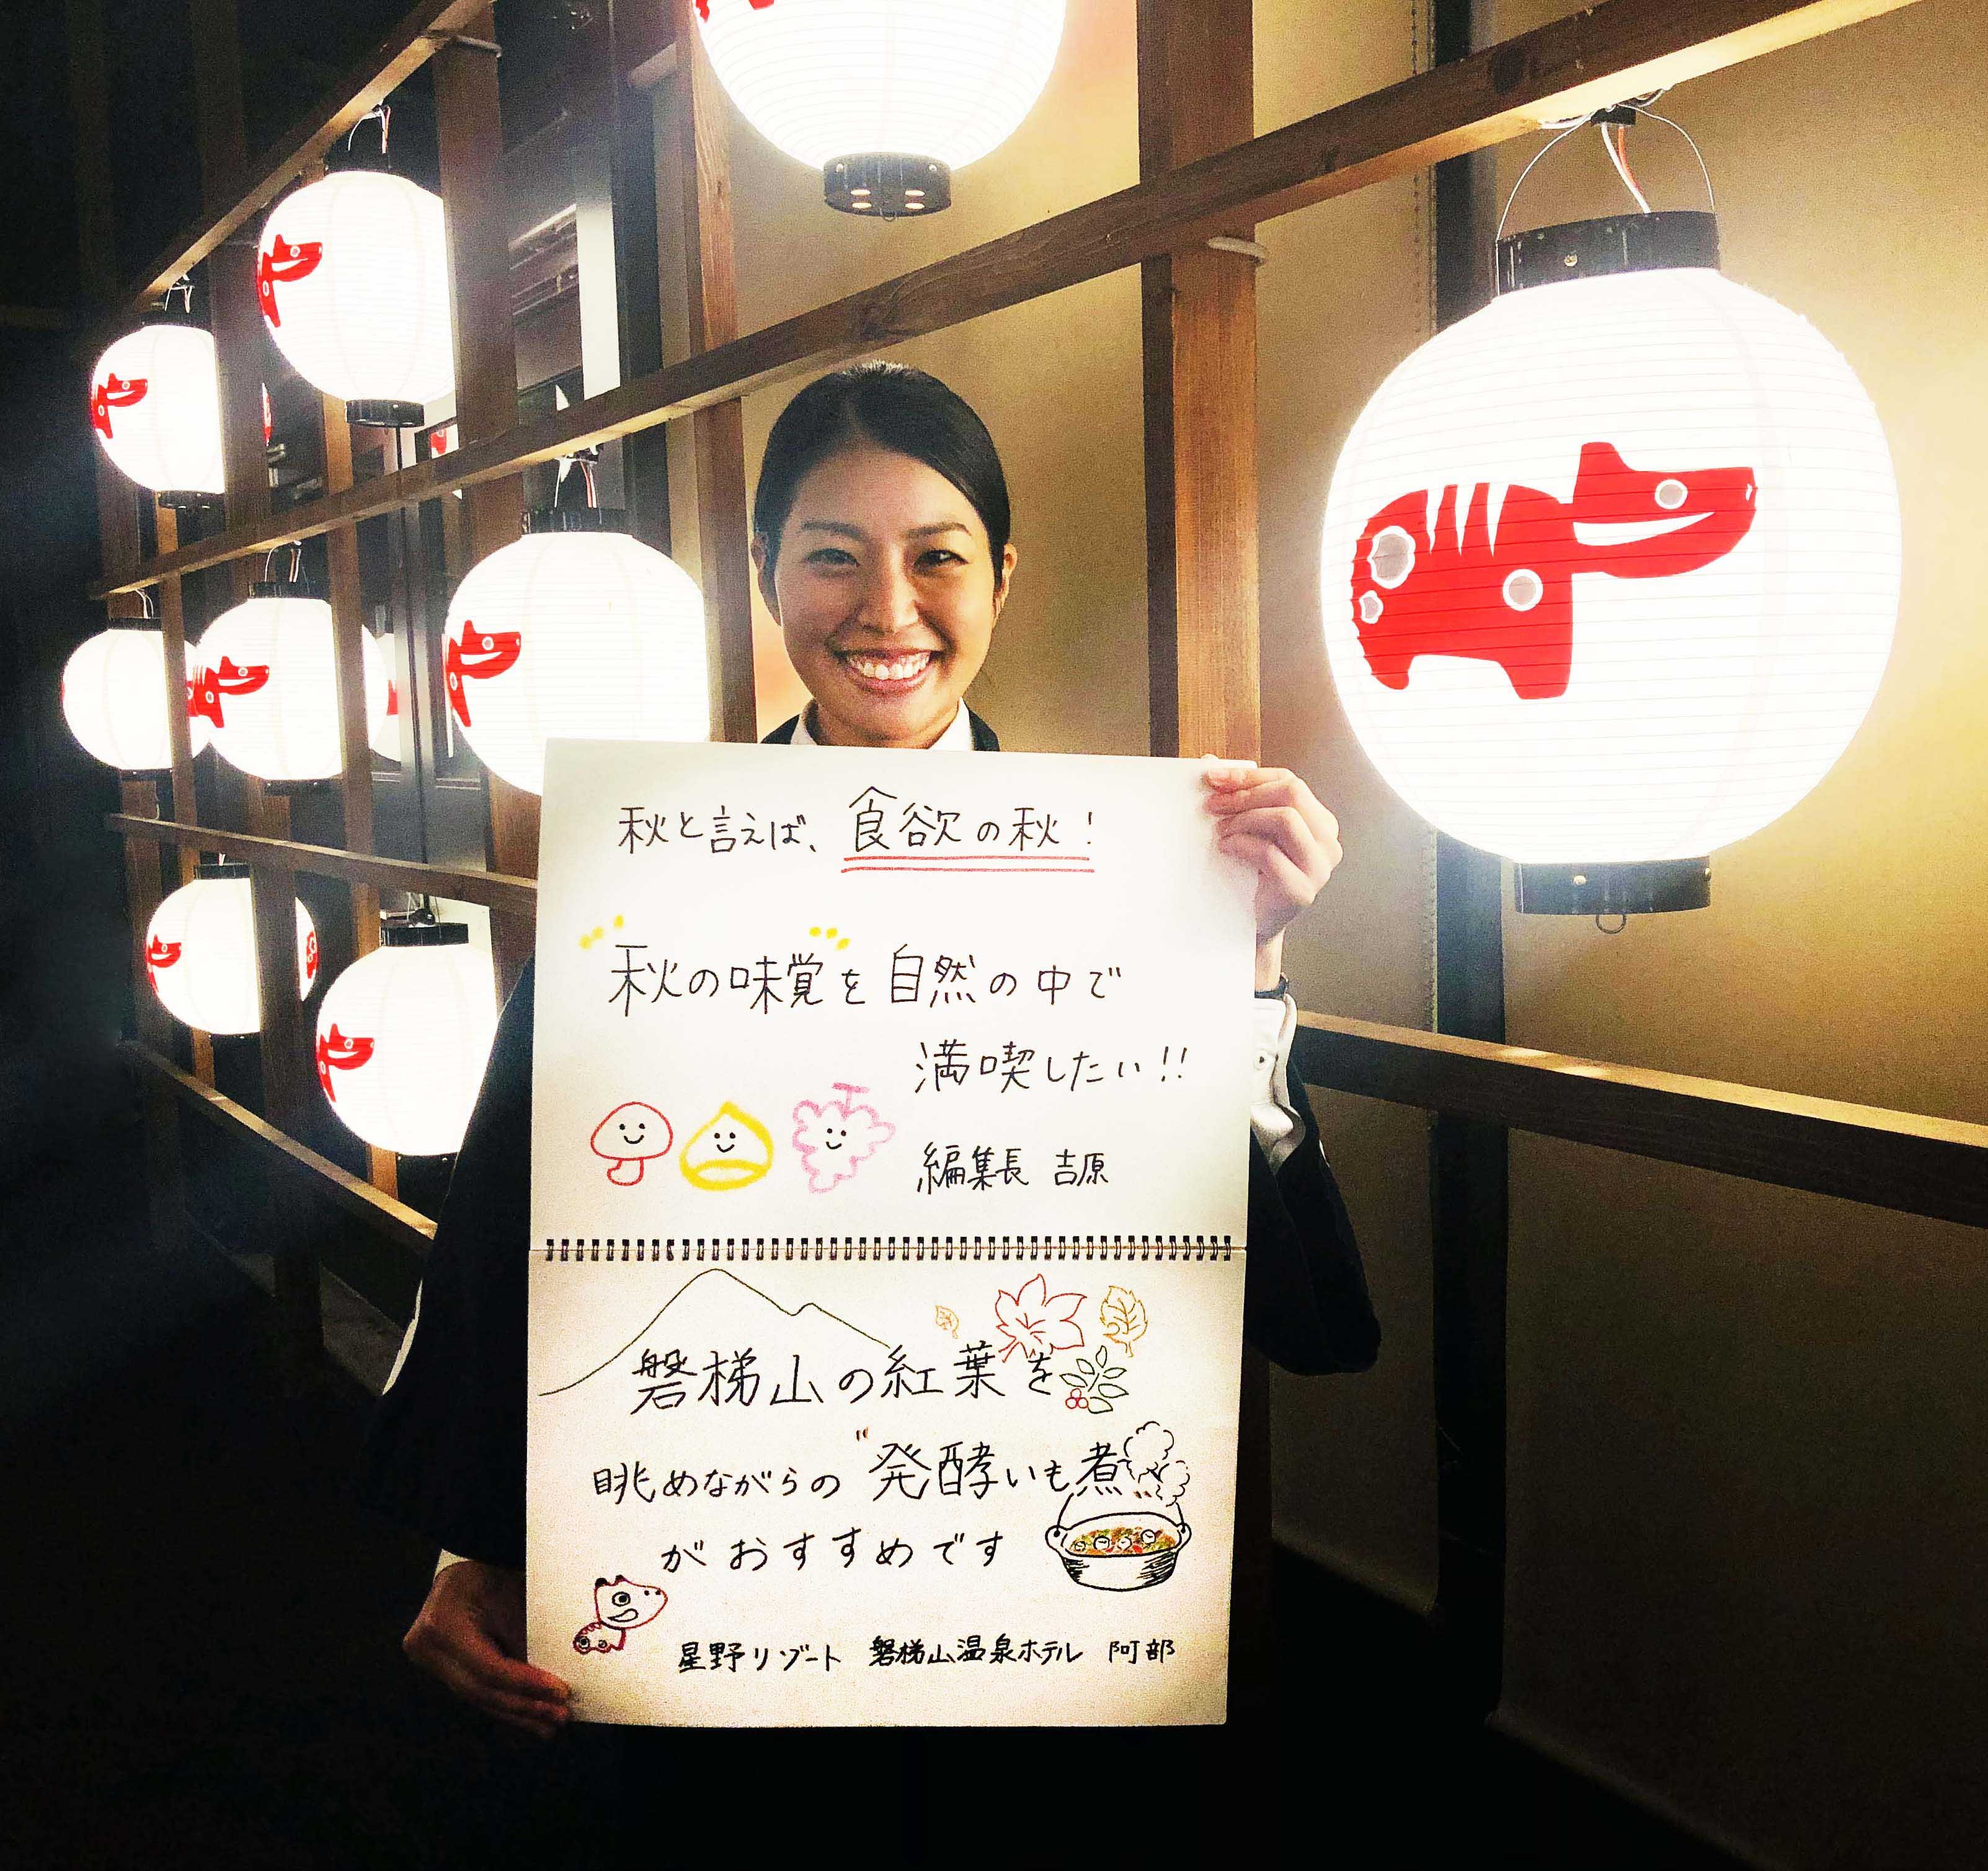 秋と言えば、食欲の秋!
秋の味覚を自然の中で
満喫したい!!
編集長 吉原
磐梯山の紅葉を
眺めながらの"発酵いも煮"
がおすすめです
星野リゾート 磐梯山温泉ホテル 阿部